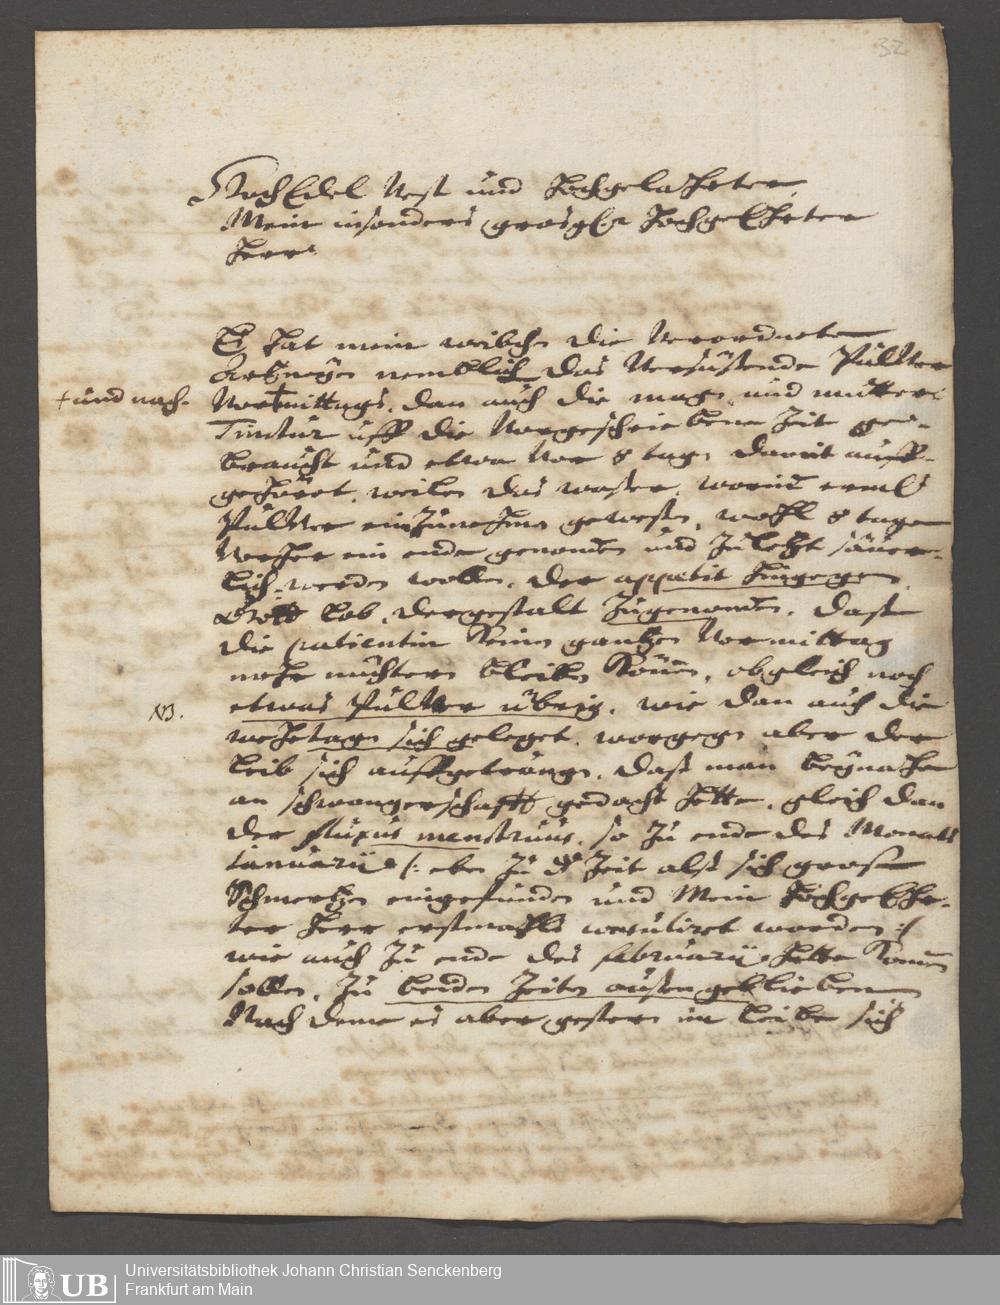 32
HochEdel Vest und Hochgelahrter
Mein insonders grosgl. Hochgeehrter
Herr
Es hat mein weibchen die Verordneten
Artzneyen nemblich das Versüssende Pulver
+ und nach-
Vor+mittags, dan auch die magen und mutter-
Tinctur uff die Vorgeschriebene Zeit ge-
braucht und etwa vor 8 tagen damit auff-
gehört, weilen das wasser, worin
Pulver einzunehmen gewesen, wohl 8 tage
Vorher ein ende genommen und zuletzt säuer-
lich werden wollen. Der appetit hingegen
Gott Lob, dergestalt zugenommen, dass
die patientin keinen gantzen Vormittag
mehr nüchtern bleiben können, obgleich noch
NB.
etwas Pulver übrig, wie dan auch die
wehetagen sich geleget, wogegen aber der
Leib sich auffgetrungen, dass man beynahe
an schwangerschafft gedacht hette, gleich dan
der fluxus menstruus, so zu ende des Monats
Januarii /: eben zu der Zeit alss sich grosse
Schmertzen eingefunden und Mein Hochgeehr-
ter Herr erstmahls consuliret worden :/
wie auch zu ende des Februarii hette kommen
sollen, zu beyden Zeiten aussengeblieben
Nach deme es aber gestern im Leibe sich
UB
Universitätsbibliothek Johann Christian Senckenberg
Frankfurt am Main